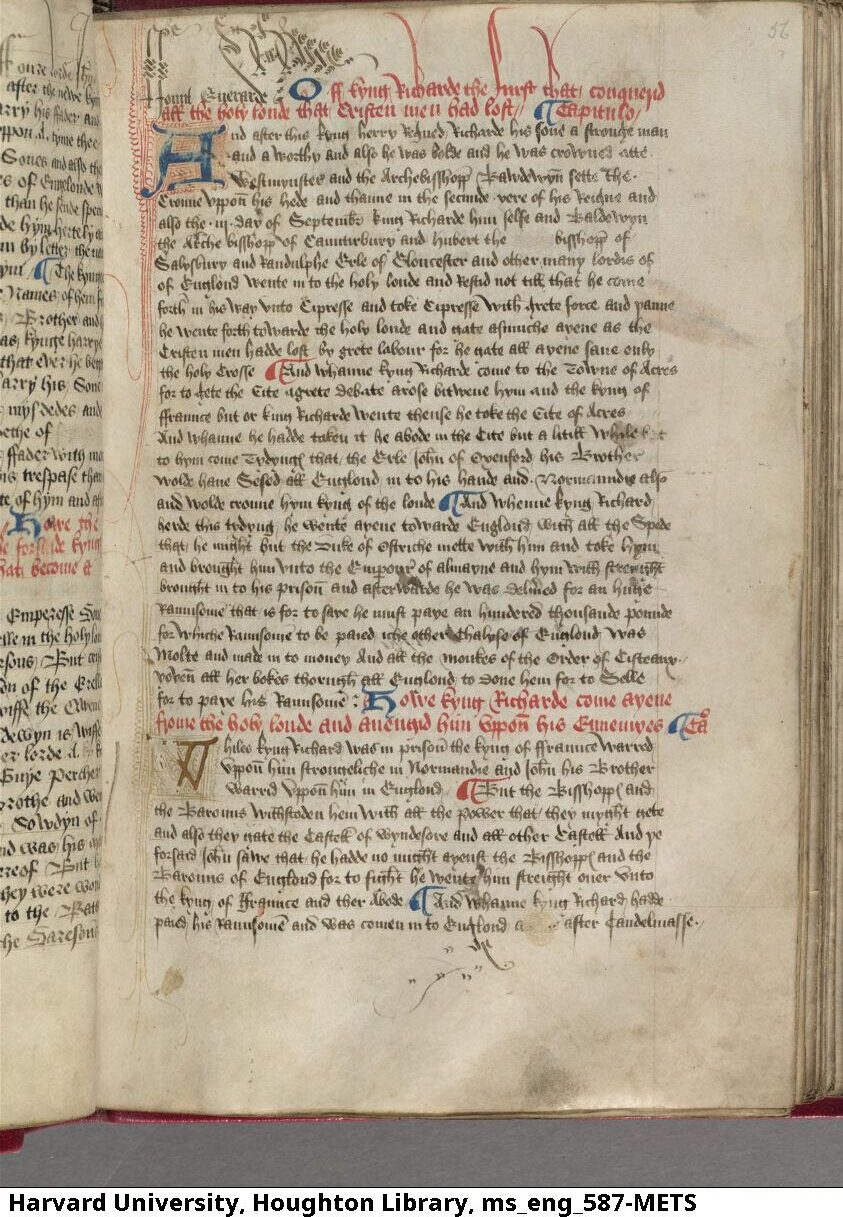 56
Off kyng Richarde the furst that conquerd
all the holy londe that Cristen men had lost Capitulo
And after this kyng Herry Reigned Richarde his sone a stronge man
and a worthy and also he was bolde and he was crowned atte
Westmynster and the Archebisshopp Bawdewyn sette the
Crowne vppon his hede and thanne in the secunde yere of his Reigne and
also the iij day of Septembr king Richarde him selfe and Baldewyn
the Arche bisshopp of Caunturbury and Hubert the bisshopp of
Salysbury and Randulphe Erle of Gloucester and other many lordis of
of Englond wente in to the holy londe and Restid not till that he come
forth in his way vnto Cipresse and toke Cipresse with grete force and panne
he wente forth towarde the holy londe and gate asmuche ayene as the
Cristen men hadde lost by grete labour for he gate all ayene saue only
the holy Crosse And whanne kyng Richarde come to the Towne of Acres
for to gete the Cite a grete debate arose bitwene hym and the kyng of
ffraunce but or king Richarde wente thense he toke the Cite of Acres
And whanne he hadde taken it he abode in the Cite but a litill while
to hym come Tydyngs that the Erle John of Oxenford his Brother
wolde haue Sesed all Englond in to his hande and Normandie also
and wolde crowne hym kyng of the londe And whenne kyng Richard
herde this tydyng he wente ayene towarde Englond with all the Spede
that he might but the Duke of Ostriche mette with him and toke hym
and brought him vnto the Empour of almayne and hym with streinght
brought in to his prison and afterwarde he was delined for an huge
Raunsome that is for to saye he must paye an hundered thousande pounde
for whiche Raunsome to be paied iche other Chalyse of Englond was
Molte and made in to money And all the monkes of the Order of Cisteaux
yoven all her bokes thorugh all Englond to done hem for to Selle
for to paye his Raunsome Howe kyng Richarde come ayene
frome the holy londe and auengid him vppon his Ennemyes Ca
Whiles kyng Richard was in prison the kyng of ffraunce warred
vppon him strongeliche in Normandie and John his Brother
warred vppon him in Englond But the Bisshopps and
the Barouns withstoden hem with all the power that they myght gete
and also they gate the Castell of wyndesore and all other Castell And pe
forsaid John sawe that he hadde no might ayenst the Bisshopps and the
Barouns of Englond for to fight he wente him streight ouer vnto
the kyng of ffraunce and ther Abode And whanne kyng Richard hadde
paied his Raunsome and was comen in to Englond after Candelmasse
Harvard University, Houghton Library, ms_eng_587-METS